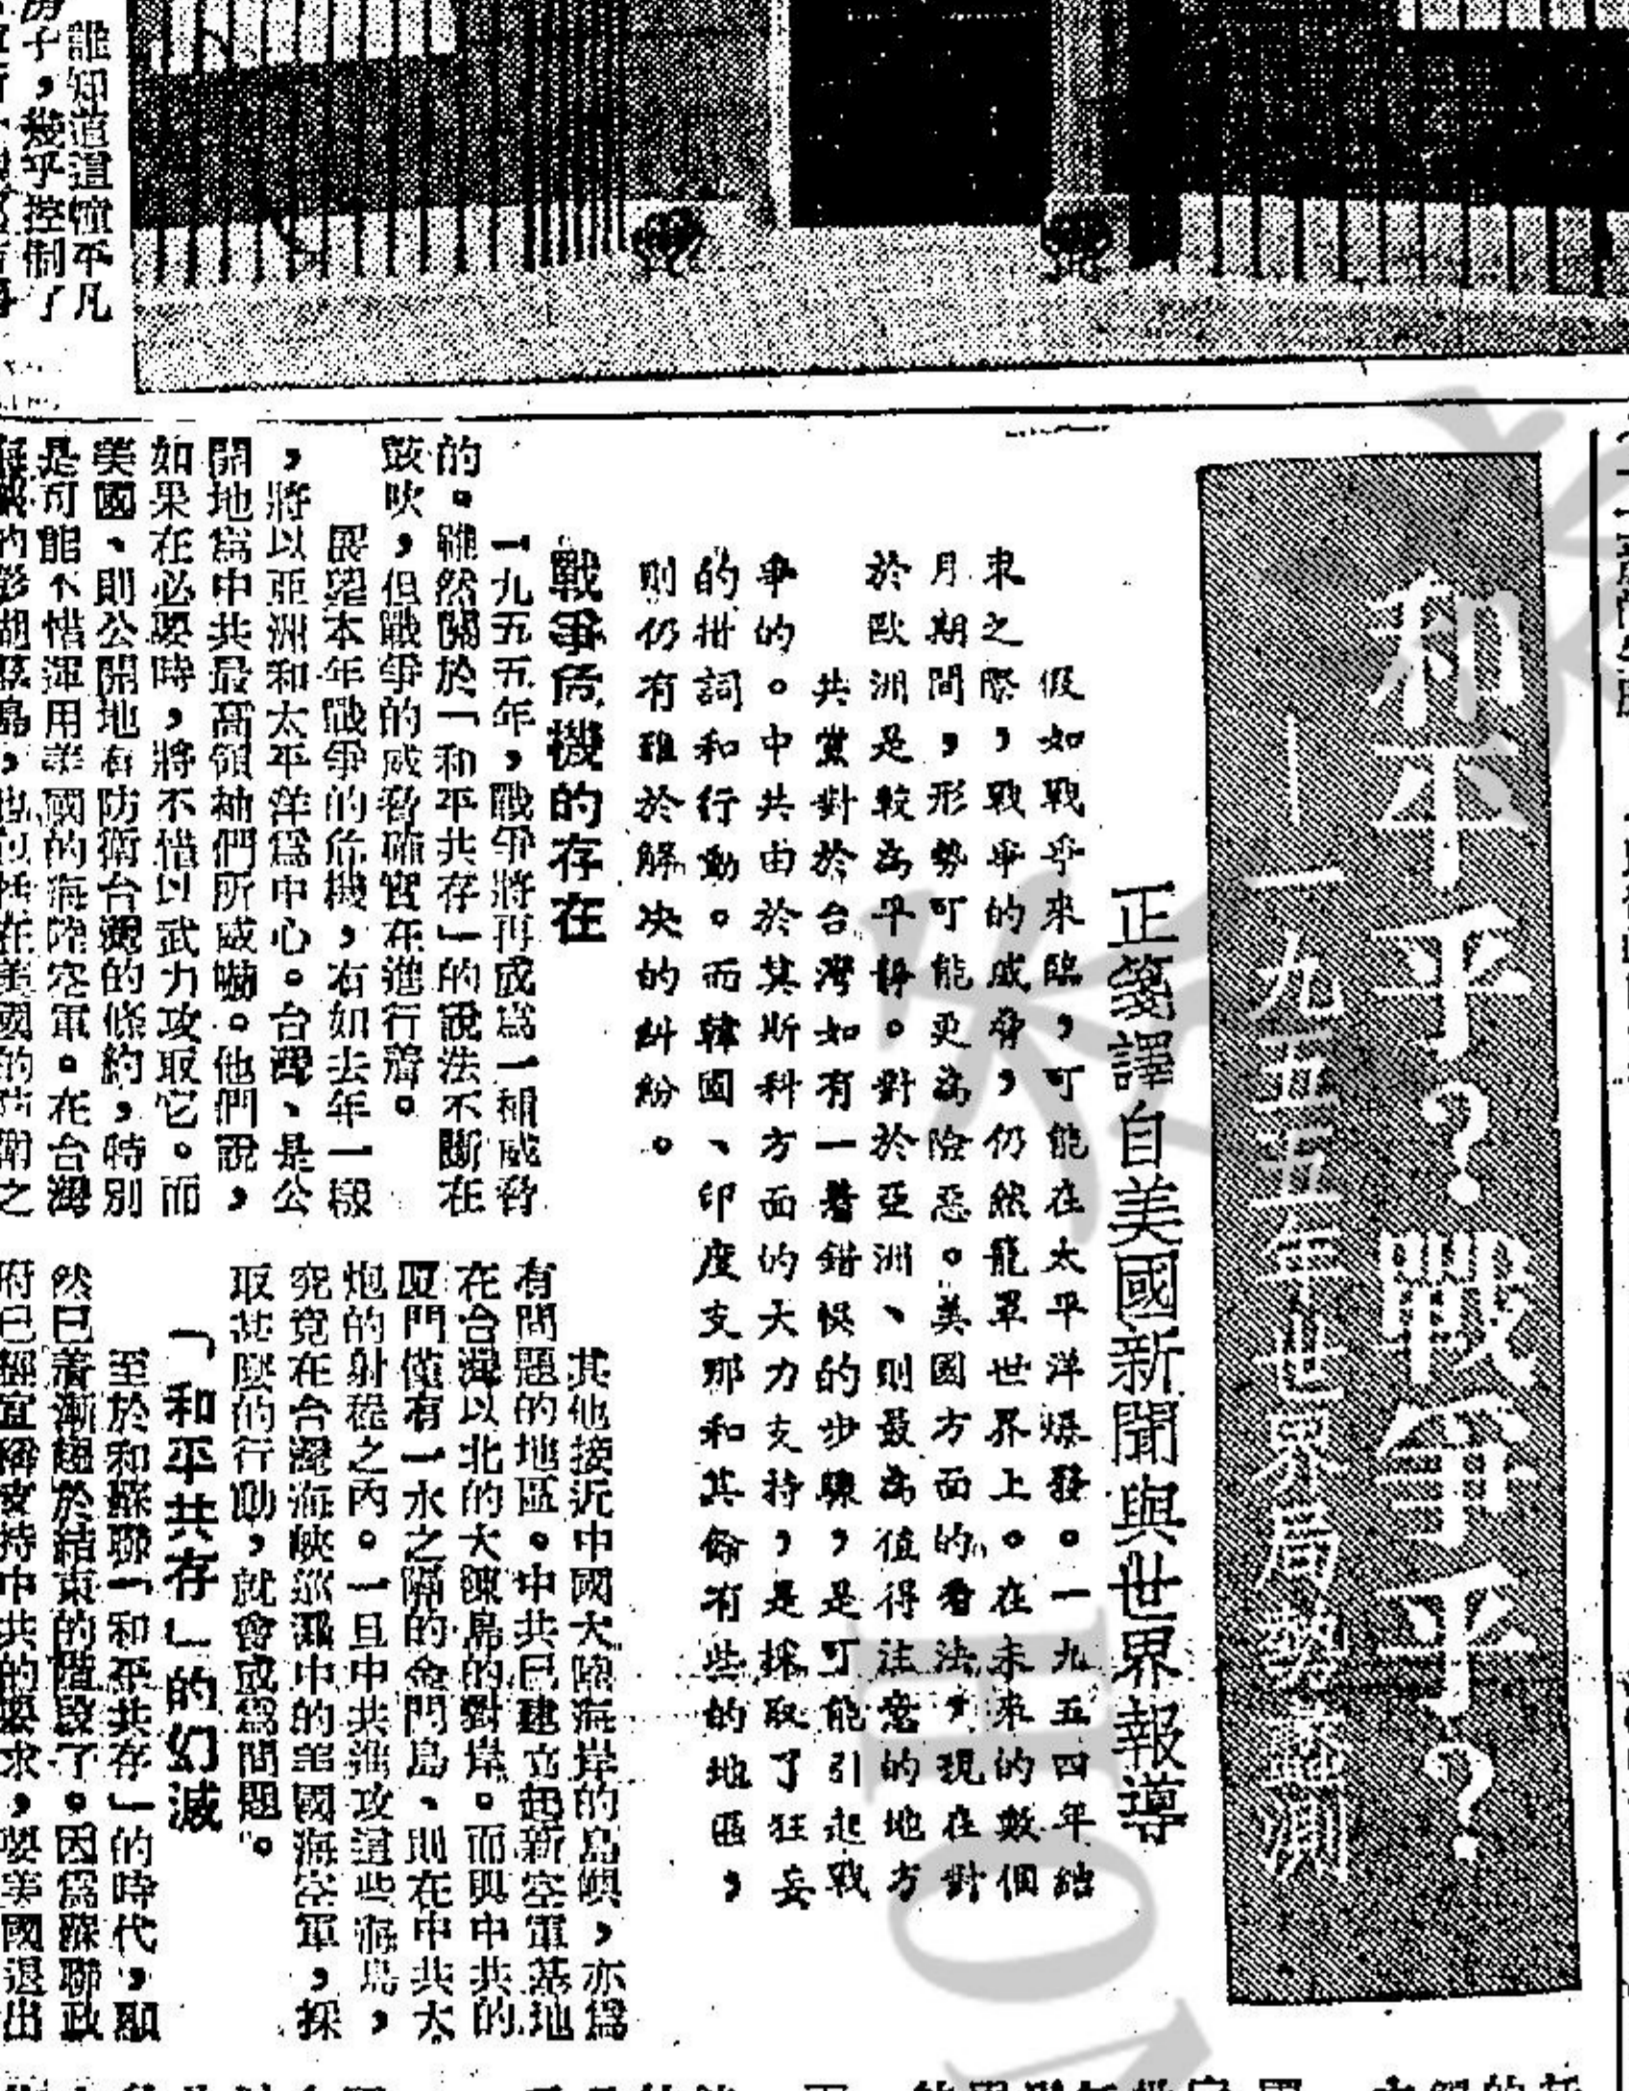 和乎？戰爭乎？
——一九五五年世界局勢蠡測
正箋譯自美國新聞與世界報導
假如戰乎來臨，可能在太平洋爆發。一九五四年結
束之際，戰爭的威脅，仍然籠罩世界上。在未來的數個
月期間，形勢可能更為險惡。美國方面的看法，現在對
於歐洲是較為平靜。對於亞洲、則最為值得注意的地方
共黨對於台灣如有一着錯悞的步驟，是可能引起戰
爭的。中共由於莫斯科方面的大力支持，是採取了狂妄
的措詞和行動。而韓國、印度支那和其餘有些的地區，
則仍有難於解决的糾紛。
戰爭危機的存在
一九五五年，戰爭將再成為一種威脅
的。雖然關於「和平共存」的說法不斷在
鼓吹，但戰爭的威脅確實在進行着。
展望本年戰爭的危機，有如去年一般
，將以亞洲和太平洋為中心。台灣、是公
開地為中共最高領袖們所威嚇。他們說，
如果在必要時，將不惜以武力攻取它。而
美國、則公開地有防衛台灣的條約，時別
是可能不惜運用美國的海陸空軍。在台灣
的澎湖羣島，也包括在美國的防衛之
其他接近中國大陸海岸的島嶼，亦為
有問題的地區。中共已建立起新空軍基地
在台灣以北的大陳島的對岸。而與中共的
厦門僅有一水之隔的金門島、則在中共大
炮的射程之內。一旦中共進攻這些海島，
究竟在台灣海峽巡邏中的美國海空軍，採
取甚麼的行動，就會成為問題。
「和平共存」的幻滅
至於和蘇聯「和平共存」的時代，顯
然已漸趨於結束的階段了。因為蘇聯政
府已經宣稱支持中共的要求，要美國退出
誰知道這幢平凡
房子，幾乎控制了